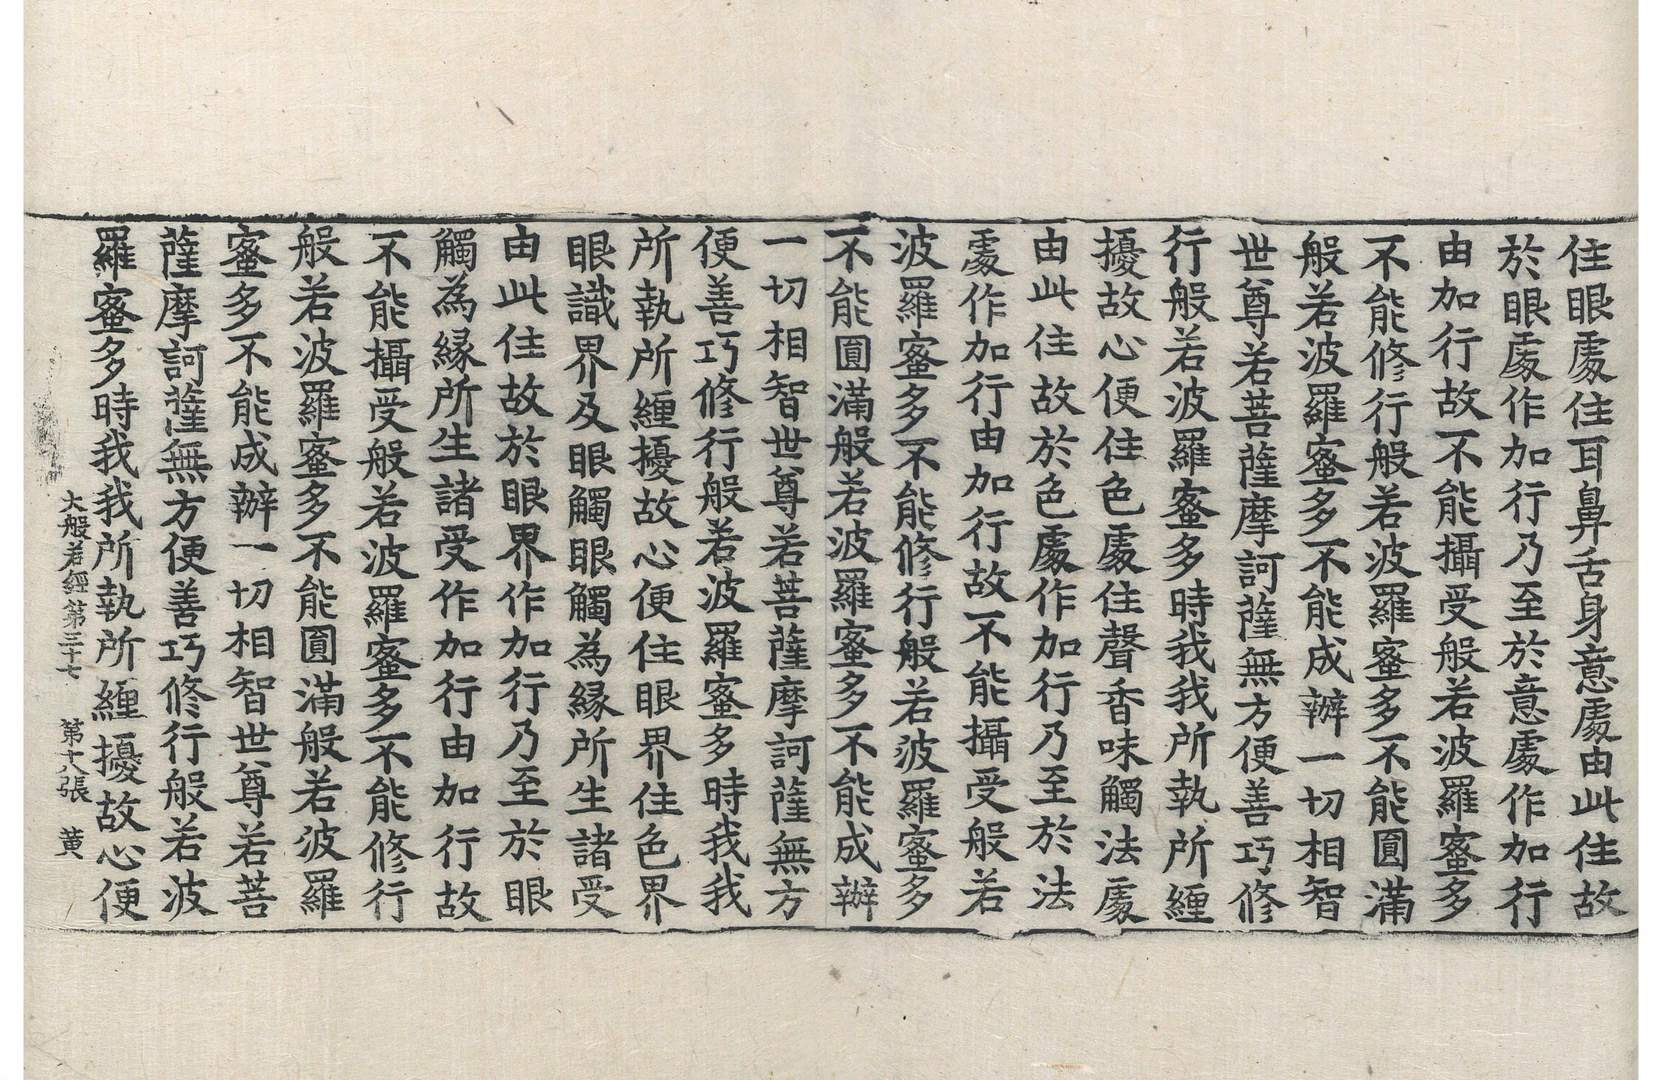 住眼處住耳鼻舌身意處由此住故
於眼處作加行乃至於意處作加行
由加行故不能攝受般若波羅蜜多
不能修行般若波羅蜜多不能圓滿
般若波羅蜜多不能成辦一切相智
世尊若菩薩摩訶薩無方便善巧修
行般若波羅蜜多時我我所執所纏
擾故心便住色處住聲香味觸法處
由此住故於色處作加行乃至於法
處作加行由加行故不能攝受般若
波羅蜜多不能修行般若波羅蜜多
不能圓滿般若波羅蜜多不能成辦
一切相智世尊若菩薩摩訶薩無方
便善巧修行般若波羅蜜多時我我
所執所纏擾故心便住眼界住色界
眼識界及眼觸眼觸為緣所生諸受
由此住故於眼界作加行乃至於眼
觸為緣所生諸受作加行由加行故
不能攝受般若波羅蜜多不能修行
般若波羅蜜多不能圓滿般若波羅
蜜多不能成辦一切相智世尊若菩
薩摩訶薩無方便善巧修行般若波
羅蜜多時我我所執所纏擾故心便
大般若經第三十七 第十八張 黃